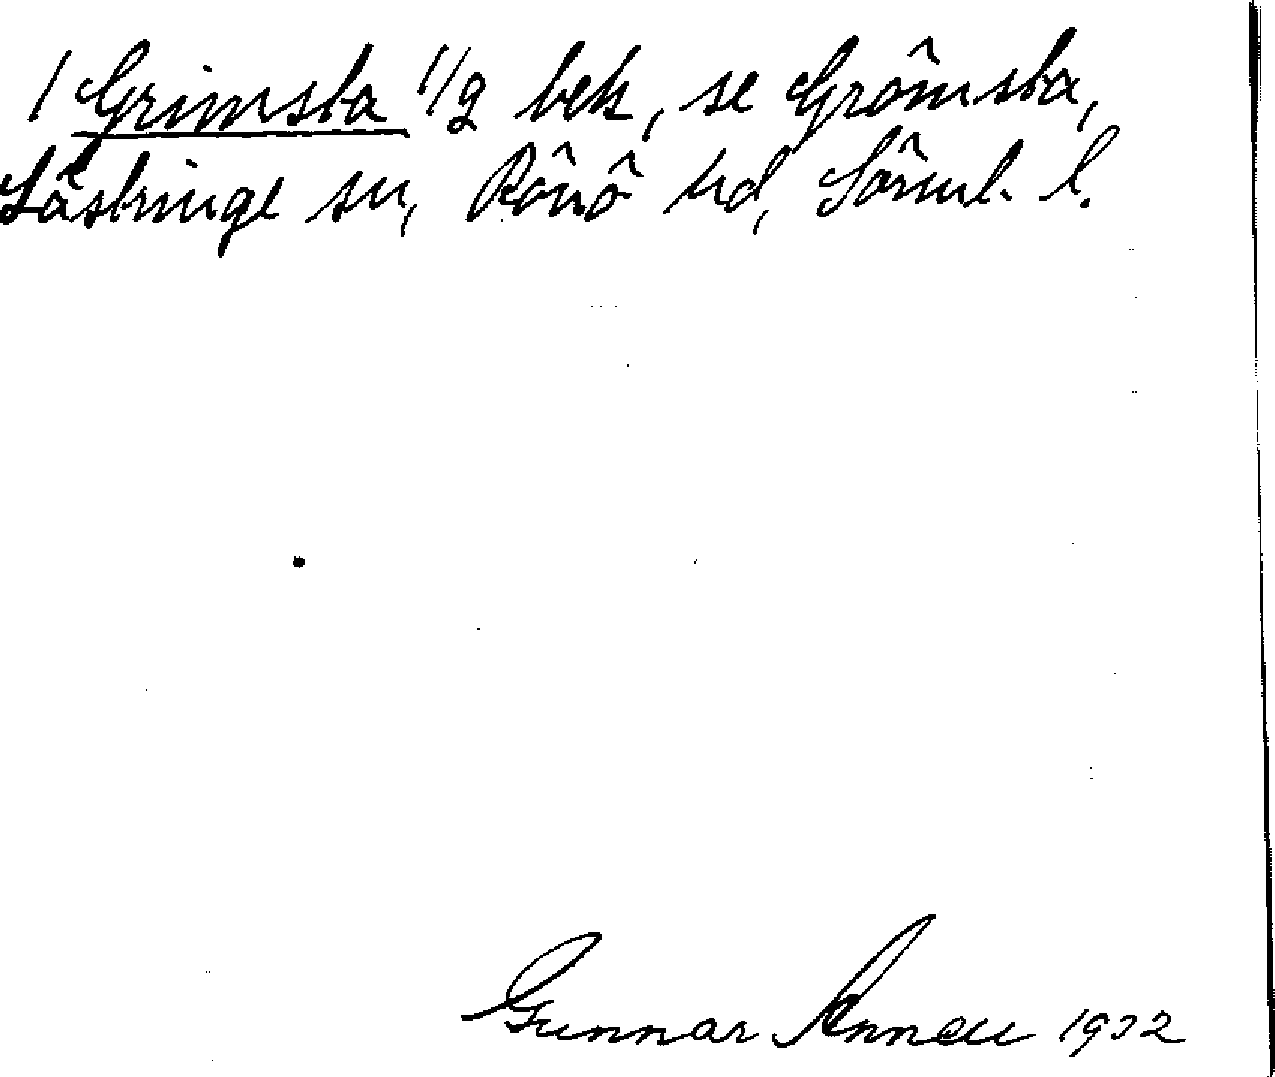 / Grimsta 1/2 bek, se Grömsta,
Lästringe sn, Rönö hd, Sörml. l.
Gunnar Annell 1932